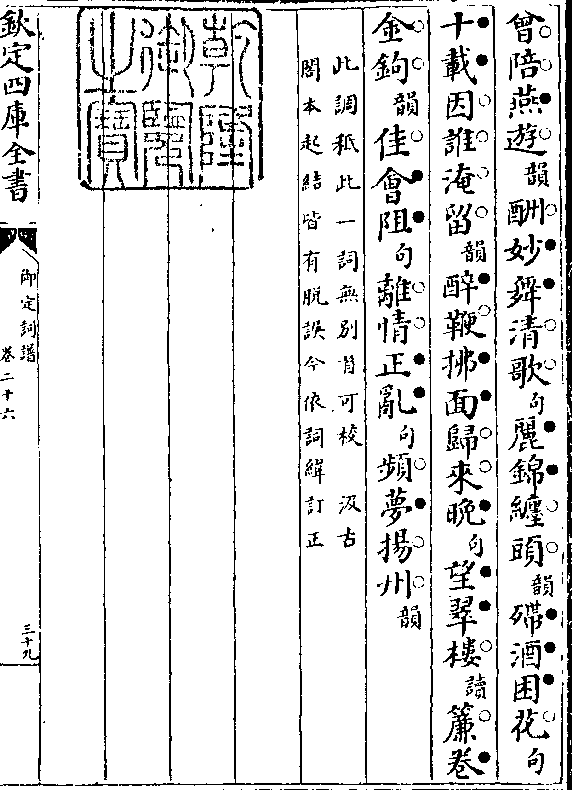 曾陪燕遊韻酬妙舞清歌句麗錦纏頭韻殢酒困花句
十載因誰淹留韻醉鞭拂面歸來晚句望翠樓讀簾卷
金鉤韻佳會阻句離情正亂句頻夢揚州韻
此調秖此一詞無別首可校 汲古
閣本起結皆有脫誤今依詞緯訂正
乾隆御覽之寶
欽定四庫全書
御定詞譜
卷二十六
三十九